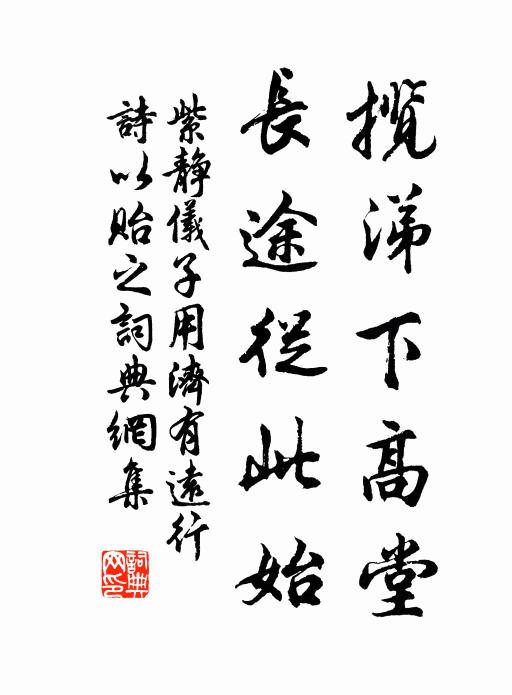 攬涕下高堂
長途從此始
紫靜儀子用濟有遠行
詩以貽之詞典網集
詞典
网印